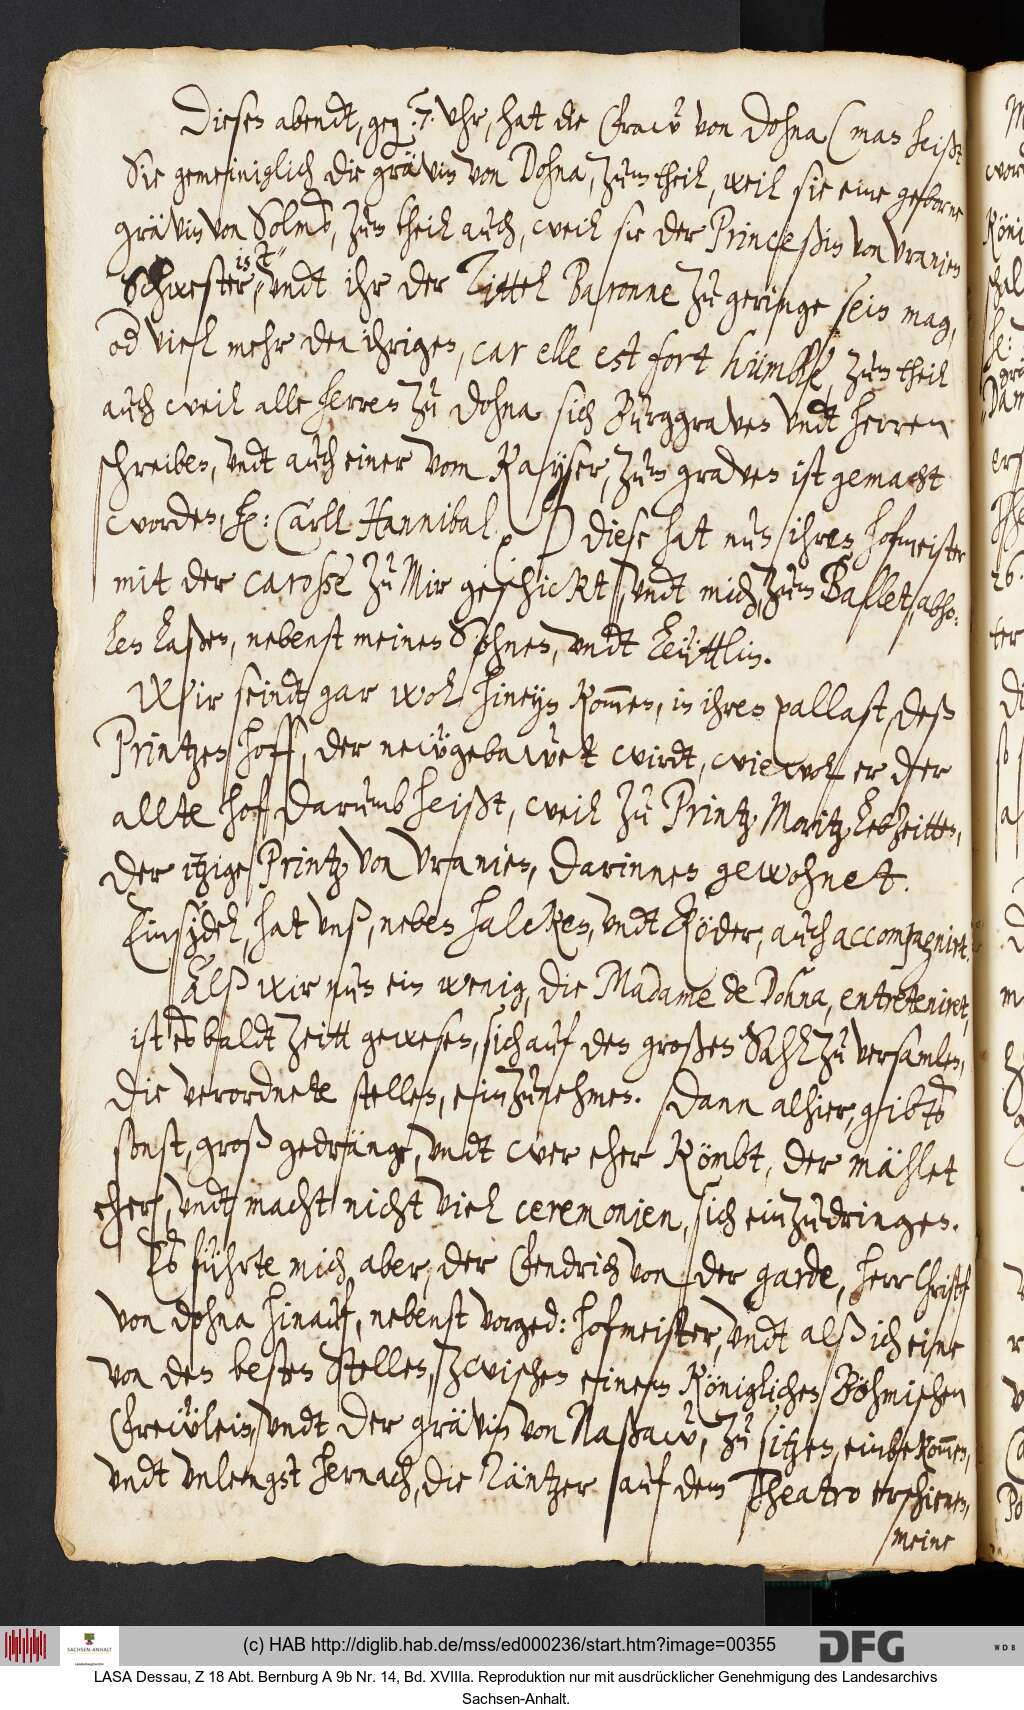 Dieses abendt, geg. 7. Uhr, hat die Fraw von Dohna (man heißt
Sie gemeiniglich die grävin von Dohna, zum theil, weil sie eine geborne
grävin von Solms, zum theil auch, weil sie der Princeßin von Uranien
Schwester, ist undt ihr der Tittel Baronne zu geringe sein mag,
od vielmehr den ihrigen, car elle est fort humble, zum theil
auch weil alle herren zu Dohna sich Burggraven undt herren
schreiben, undt auch einer vom Kayser, zum graven ist gemacht
worden, h: Carll Hannibal.) diese hat nun ihren hofmeister
mit der carosse zu Mir geschickt, undt mich zum Ballet, abho-
len laßen, nebenst meinen Söhnen, undt leüttlin.
Wir seindt gar wol hineyn kommen, in ihren pallast, deß
Printzen hoff, der newgebawet wirdt, wiewol er der
allte hof darumb heißt, weil zu Printz Moritz lebzeitten,
der itzige Printz von Uranien, darinnen gewohnet.
Einsidel, hat unß, neben halcken, undt Röder, auch accompagnirt.
Alß wir nun ein wenig, die Madame de Dohna, entreteniret,
ist es baldt zeitt gewesen, sich auf den großen Sahl zu versamlen,
die verordnete stellen, einzunehmen. Dann alhier, gibts
sonst, groß gedränge, undt wer eher kömbt, der mählet
eher, undt macht nicht viel ceremonien, sich einzudringen.
Es führte mich aber, der Fendrich von der garde, herr Christof
von dohna hinauf, nebenst vorged: hofmeister, undt alß ich eine
von den besten Stellen, zwischen einem Königlichen Böhmischen
Frewlein, undt der grävin von Naßaw, zu sitzen, einbekommen,
undt unlengst hernach, die Täntzer auf dem Theatro erschienen,
meine
(c) HAB http://diglib.hab.de/mss/ed000236/start.htm?image=00355
SACHSEN-ANHALT
DFG
WDB
LASA Dessau, Z 18 Abt. Bernburg A 9b Nr. 14, Bd. XVIIIa. Reproduktion nur mit ausdrücklicher Genehmigung des Landesarchivs
Sachsen-Anhalt.